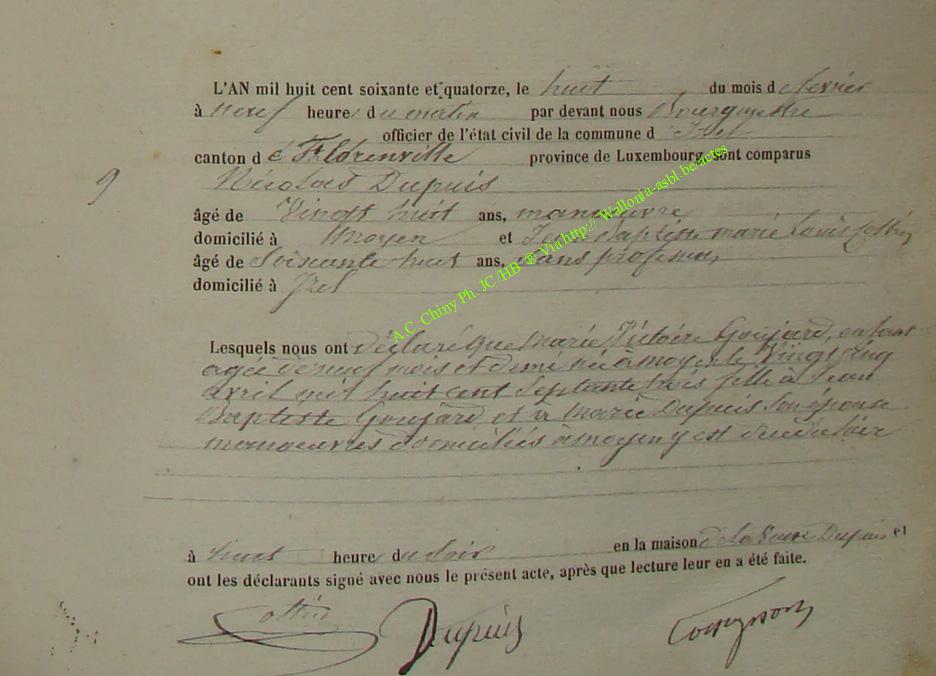 L'AN mil huit cent soixante et quatorze, le huit du mois de fevrier
à neuf heure du matin par devant nous Bourgmestre
officier de l'état civil de la commune d Izel
canton d e Florenville province de Luxembourg sont comparus
9
Nicolas Dupuis
âgé de Vingt huit ans, manoeuvre
domicilié à Moyen et Jean Baptiste marie Louis
âgé de Soixante huit ans, sans profession
domicilié à Izel
Lesquels nous ont déclaré que Marie Victoire Goujard, enfant
agée de neuf mois et demi née à moyen le Vingt cinq
avril mil huit cent septante trois fille à Jean
Baptiste Goujard et à Marie Dupuis son épouse
manoeuvres domiciliés à moyen y est
à huit heure du soir en la maison de la Veuve Dupuis et
ont les déclarants signé avec nous le présent acte, après que lecture leur en a été faite.
Dupuis
A.C. Chiny Ph. JC/HB ® Via http:// Wallonia-asbl.be/actes